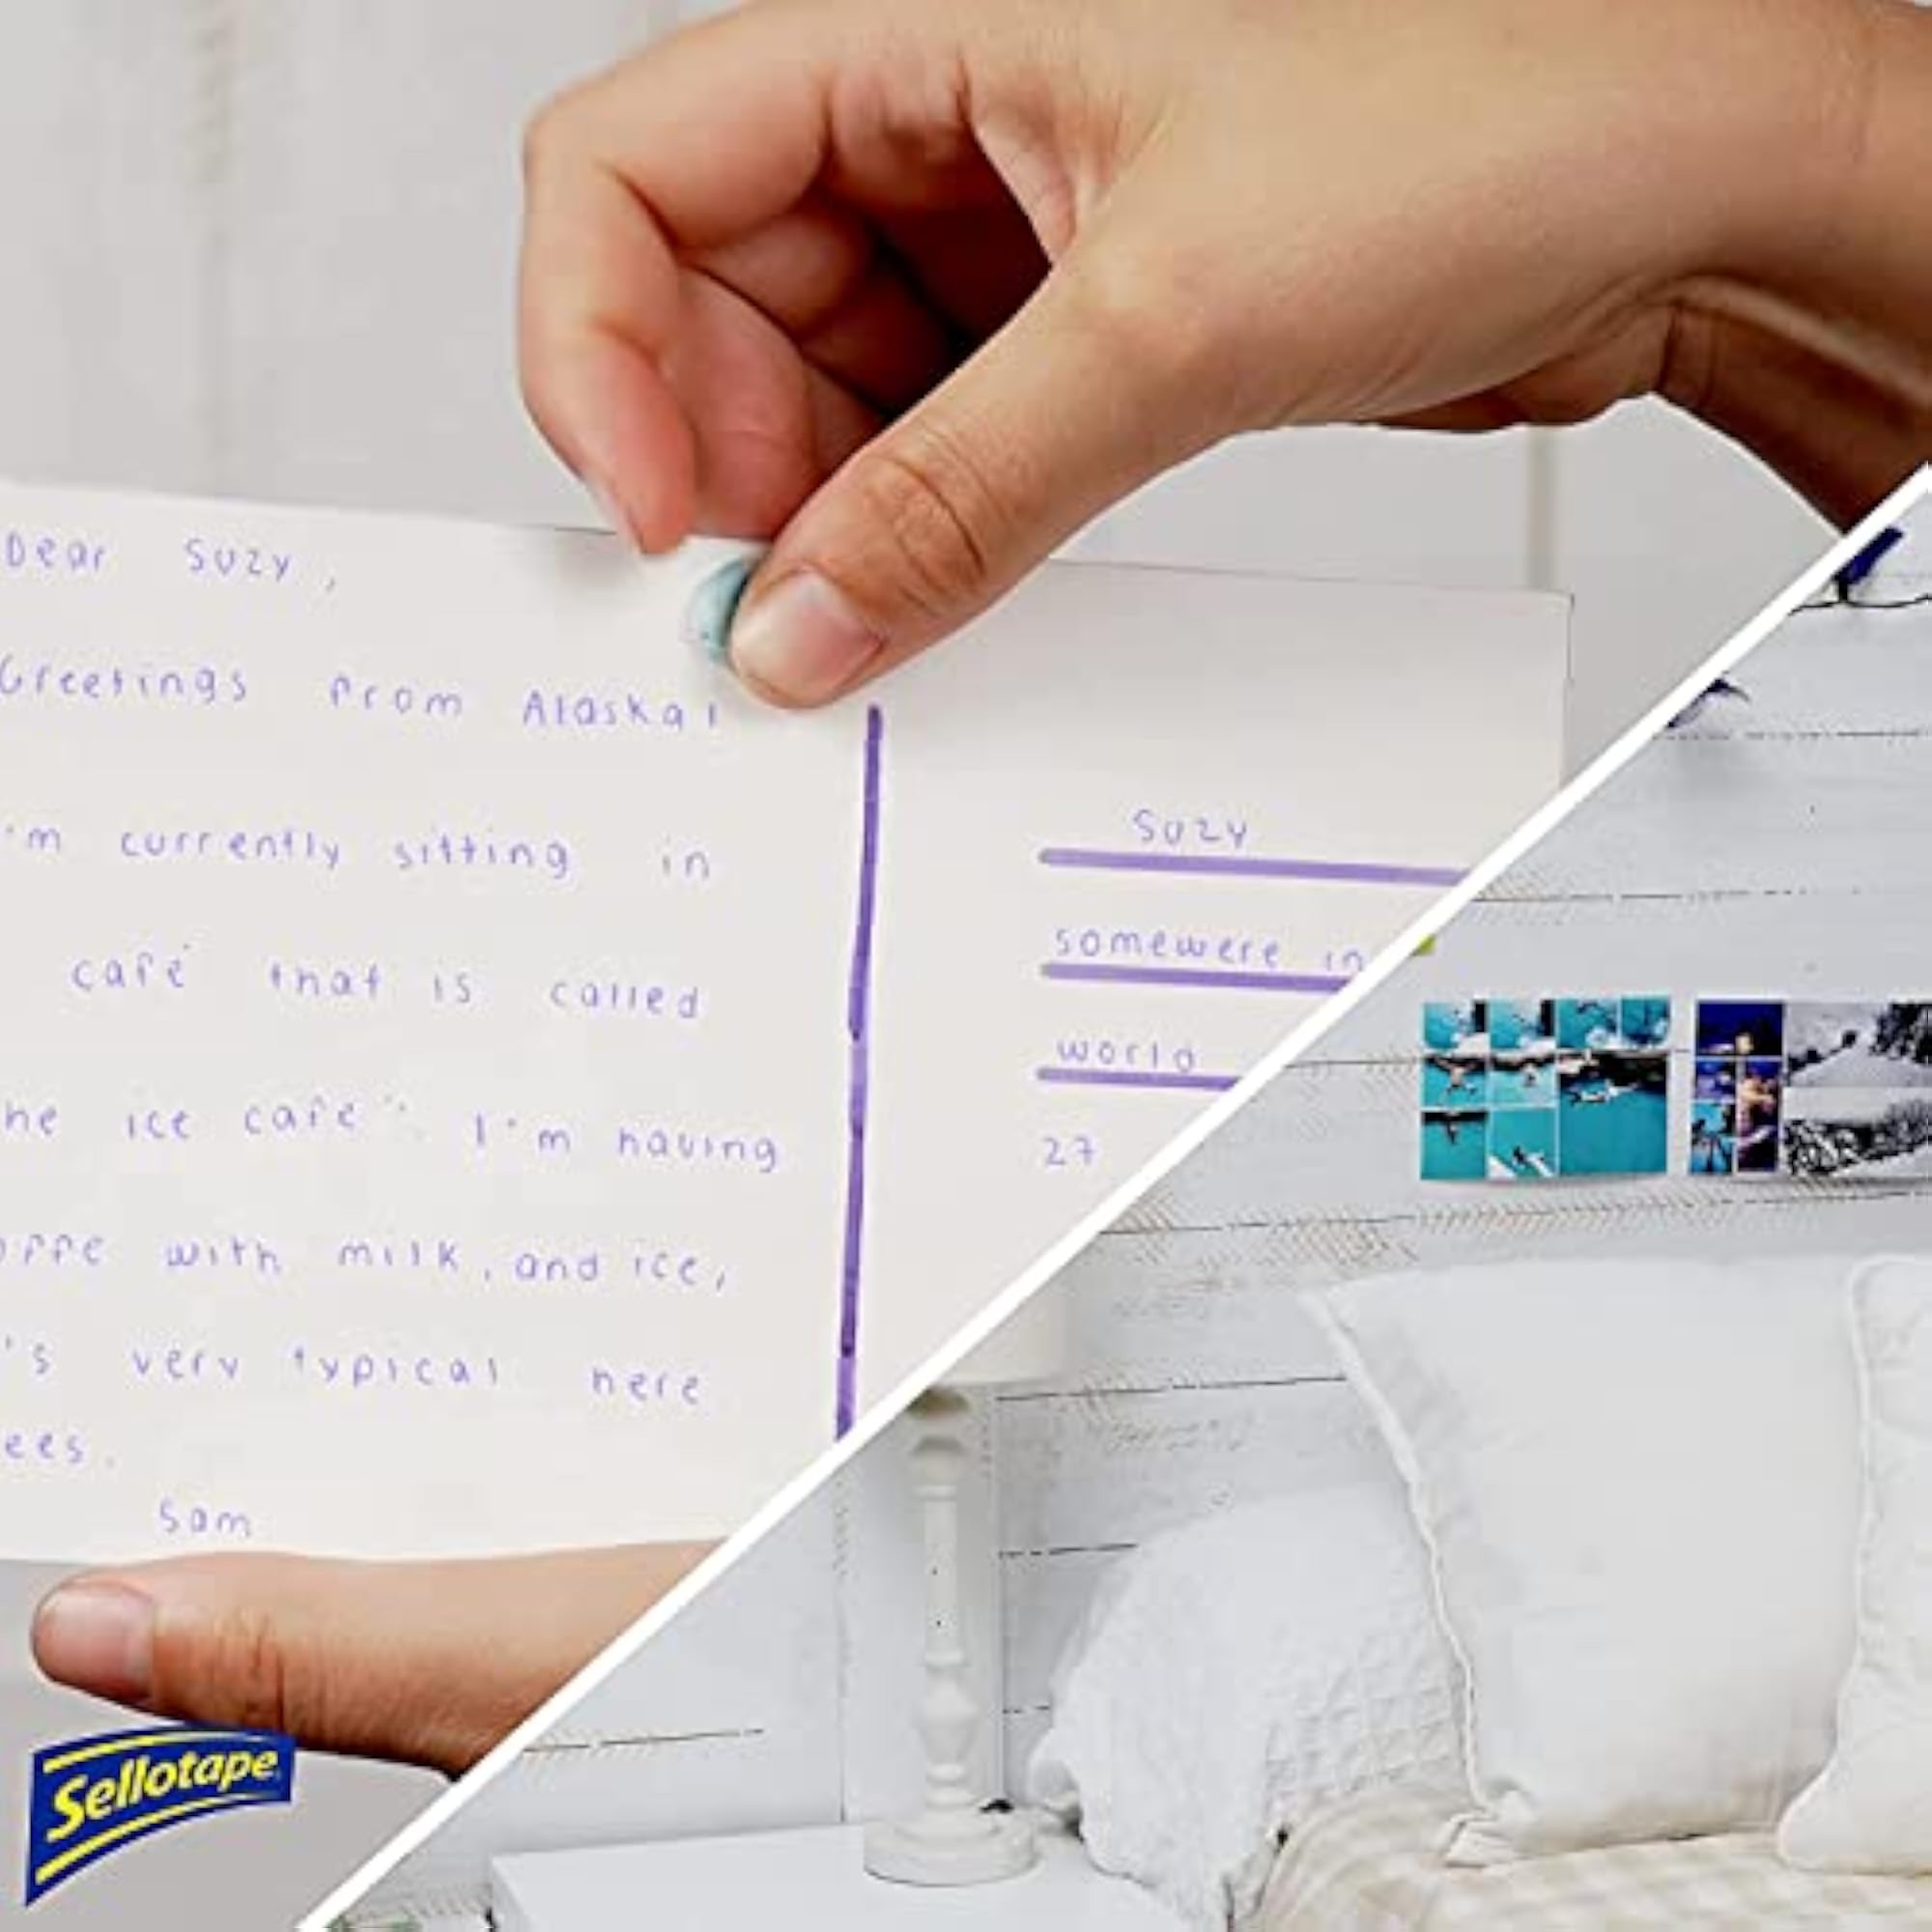 Dear Suzy,
Greetings from Alaska!
'm currently sitting in
café that is called
he ice café". I'm having
offe with milk, and ice,
's very typical here
ees.
Sam
Suzy
somewere in
world
27
Sellotape